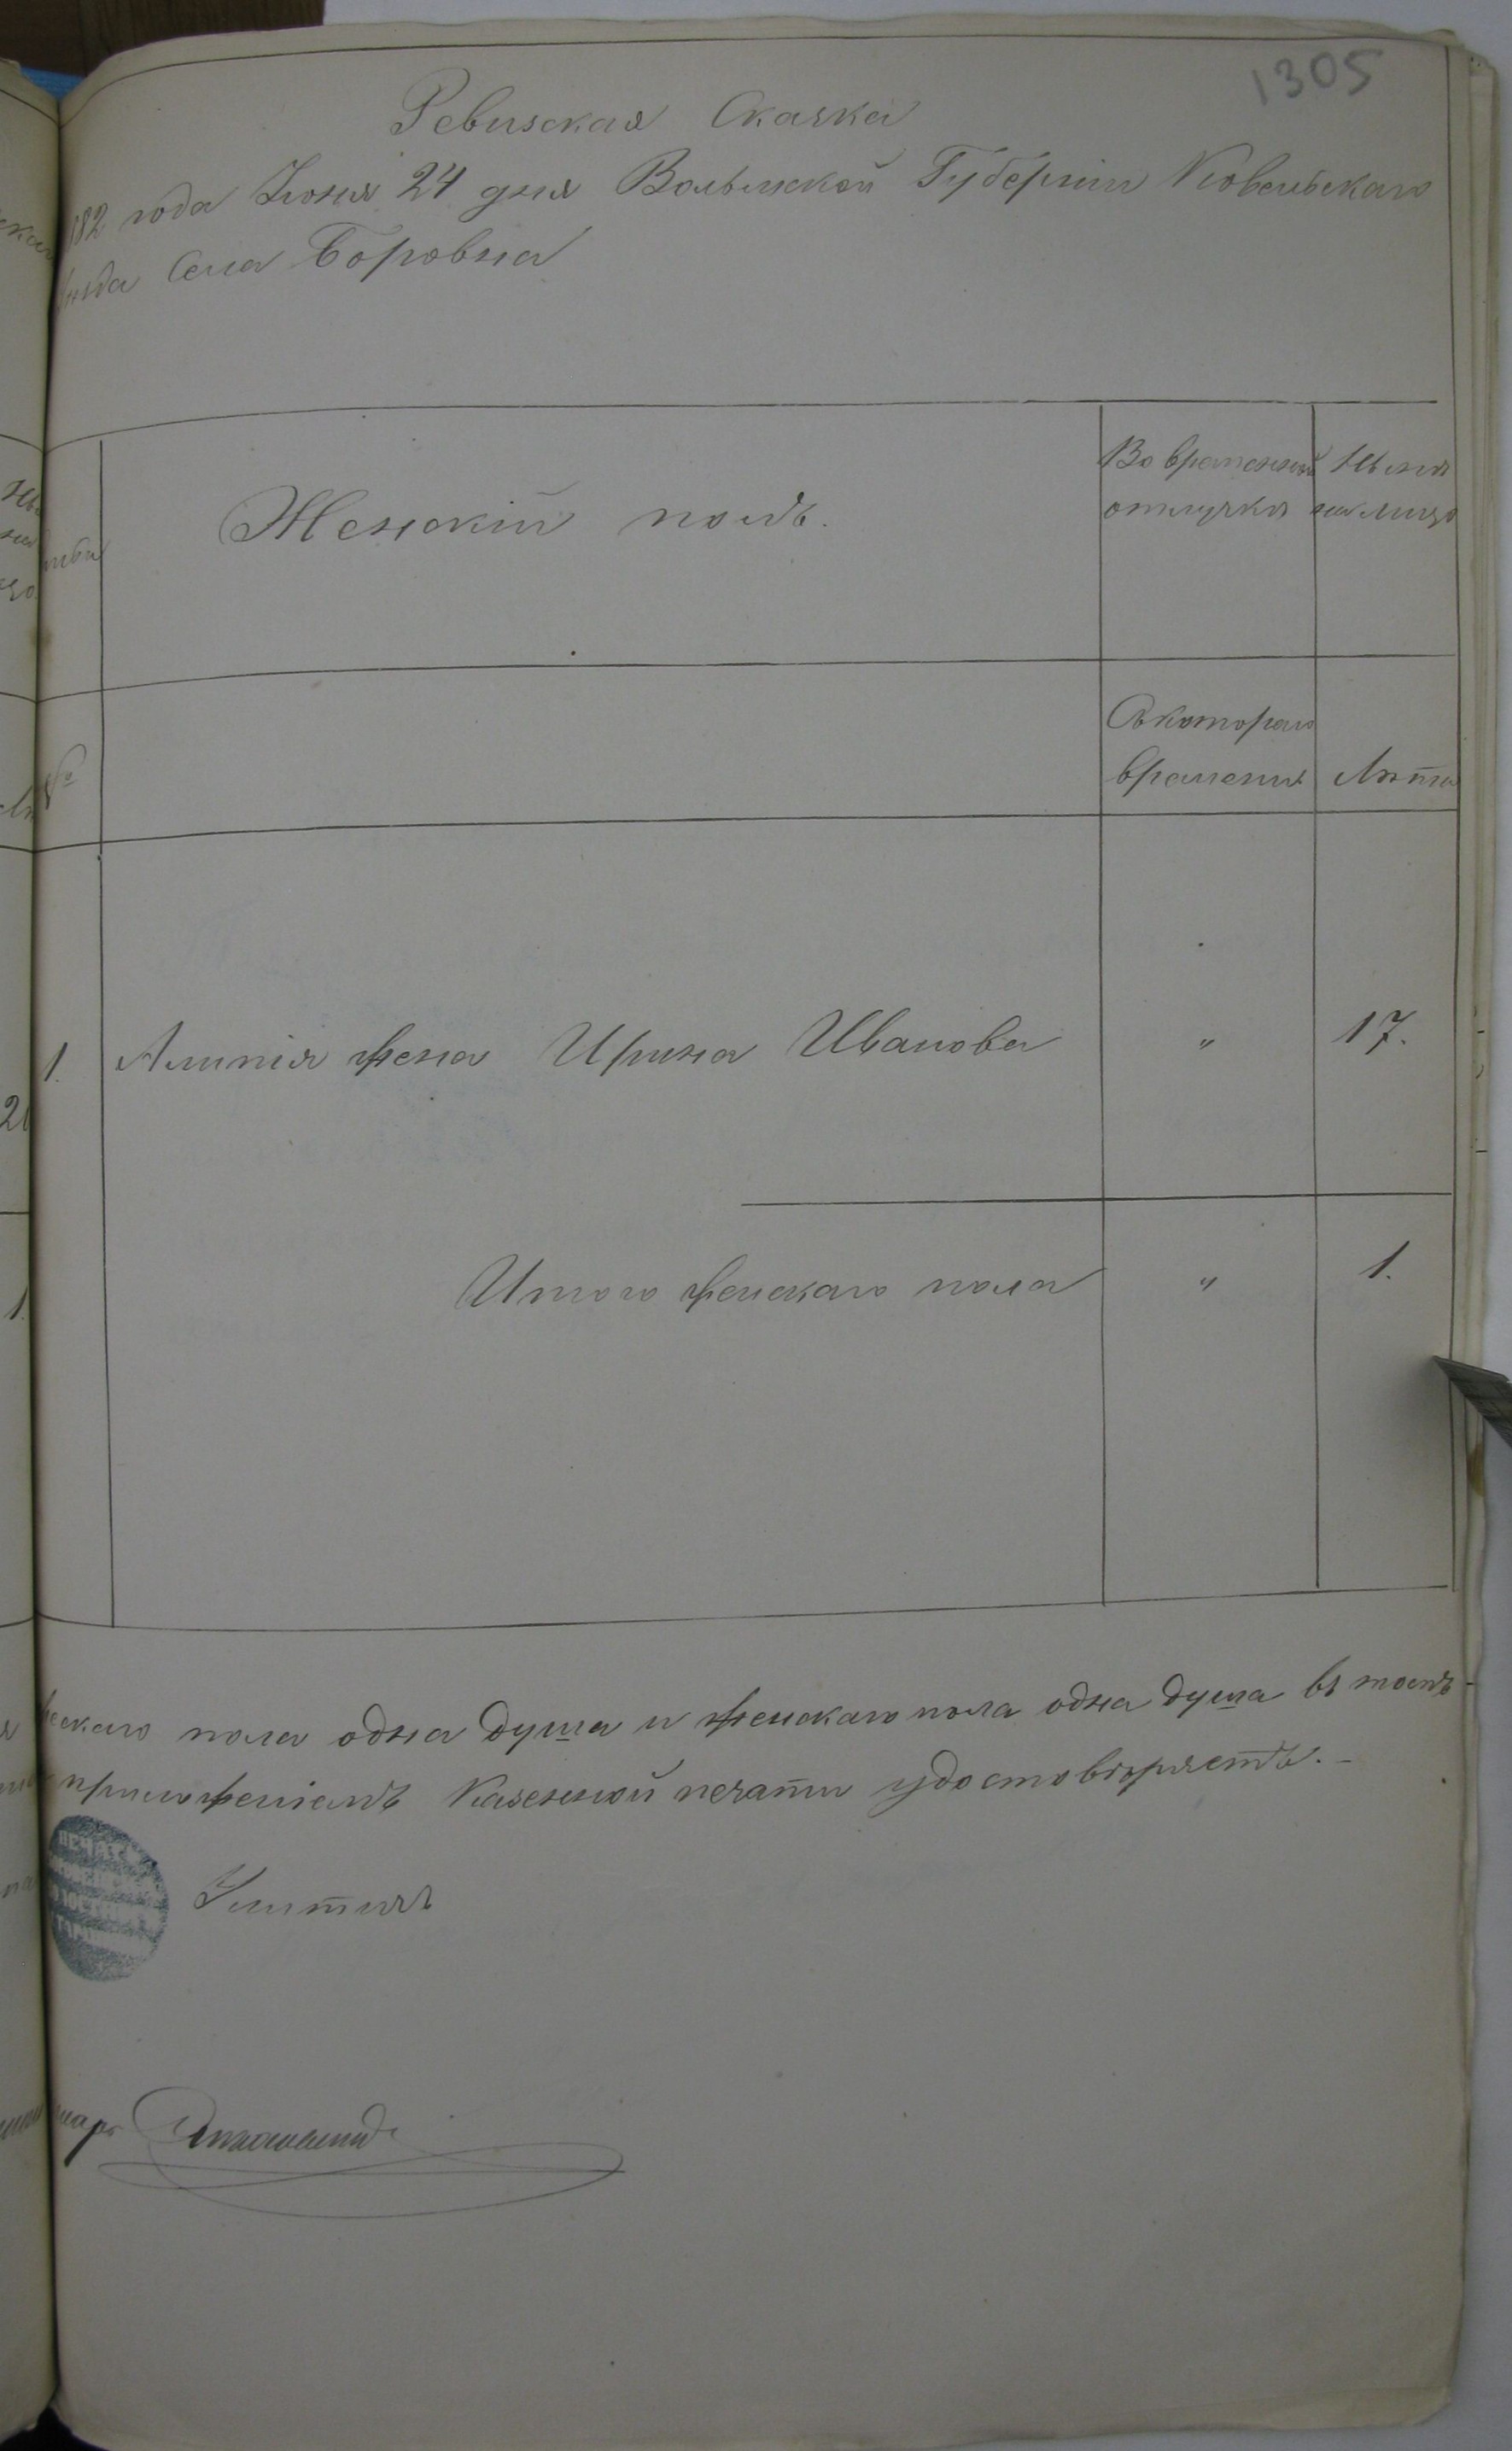 1305
Ревизская Сказка
1882 года Іюня 24 дня Волынской Губерніи Ковельскаго
уѣзда Села Боровна
Женскій полъ.
Во временной
отлучкѣ
Нынѣ
на лицо
№
Съ котораго
времени
Лѣта
1. Алипія жена Ирина Иванова " 17.
Итого женскаго пола " 1.
пола одна душа и женскаго пола одна душа въ томъ
приложеніемъ Казенной печати удостовѣряетъ.
ПЕЧАТЬ